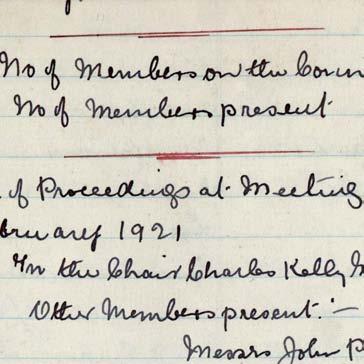 No of Members on the Coun
No of Members present
of Proceedings at Meeting
bruary 1921
In the Chair Charles Kelly
Other Members present:—
Messrs John P